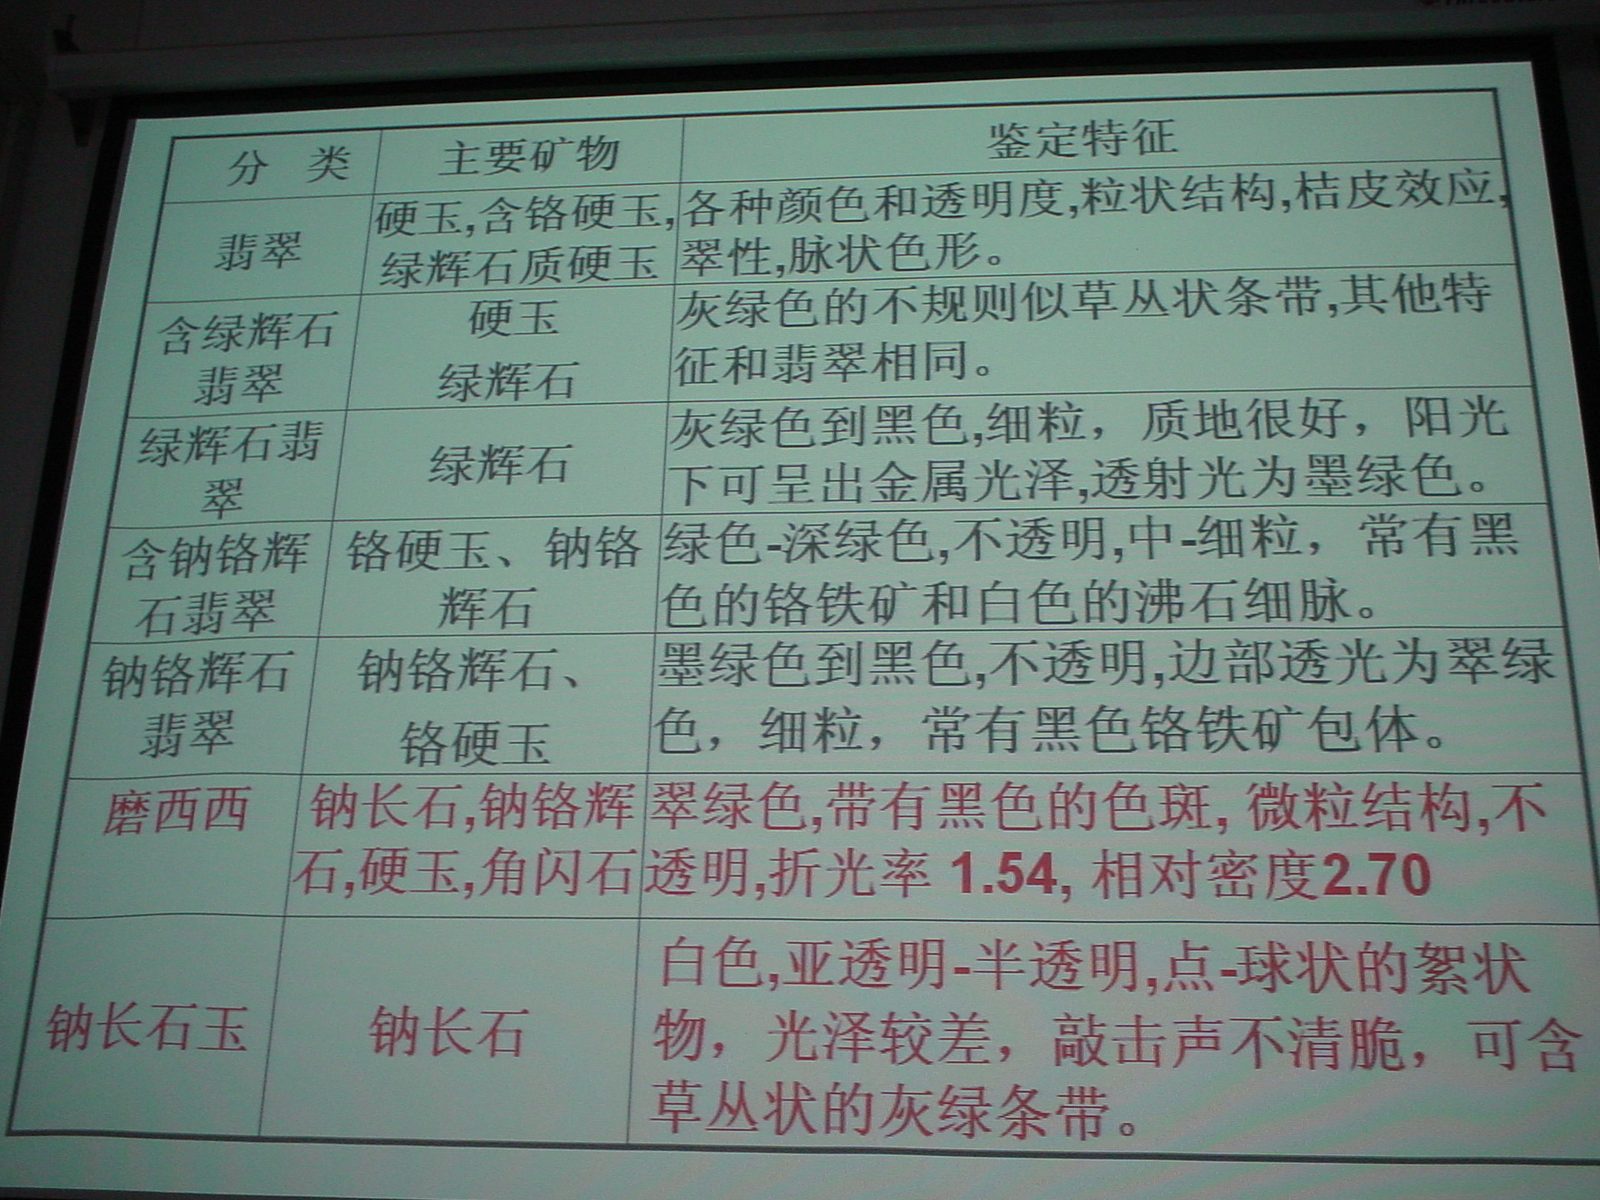 分 类 主要矿物 鉴定特征
翡翠
硬玉,含铬硬玉,
绿辉石质硬玉
各种颜色和透明度,粒状结构,桔皮效应,
翠性,脉状色形。
含绿辉石
翡翠
硬玉
绿辉石
灰绿色的不规则似草丛状条带,其他特
征和翡翠相同。
绿辉石翡
翠
绿辉石
灰绿色到黑色,细粒，质地很好，阳光
下可呈出金属光泽,透射光为墨绿色。
含钠铬辉
石翡翠
铬硬玉、钠铬
辉石
绿色-深绿色,不透明,中-细粒，常有黑
色的铬铁矿和白色的沸石细脉。
钠铬辉石
翡翠
钠铬辉石、
铬硬玉
墨绿色到黑色,不透明,边部透光为翠绿
色，细粒，常有黑色铬铁矿包体。
磨西西
钠长石,钠铬辉
石,硬玉,角闪石
翠绿色,带有黑色的色斑, 微粒结构,不
透明,折光率 1.54, 相对密度2.70
钠长石玉
钠长石
白色,亚透明-半透明,点-球状的絮状
物，光泽较差，敲击声不清脆，可含
草丛状的灰绿条带。